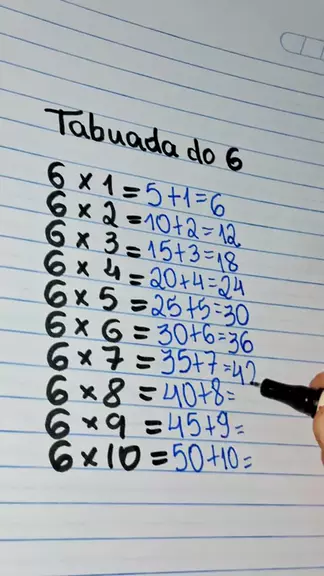 Tabuada do 6
6 x 1 = 5+1=6
6 x 2 = 10+2=12
6 x 3 = 15+3=18
6 x 4 = 20+4=24
6 x 5 = 25+5=30
6 x 6 = 30+6=36
6 x 7 = 35+7=42
6 x 8 = 40+8=
6 x 9 = 45+9=
6 x 10 = 50+10=